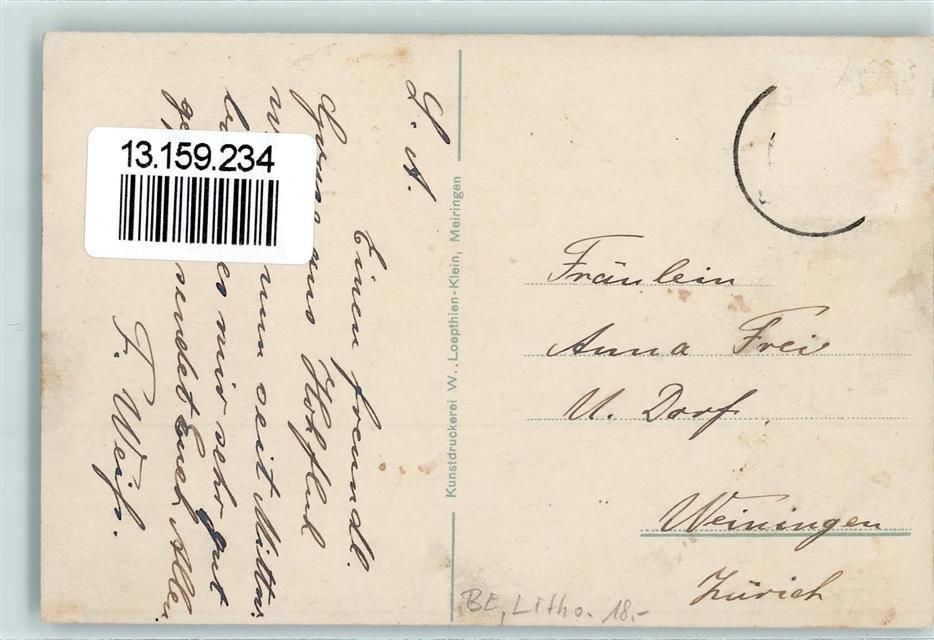 L. A.
Einen freundl.
Gruss aus Hohfluh
nun seit Mittw.
es mir sehr gut
sendet Euch Allen
F. Weiss.
13.159.234
Kunstdruckerei W. Loepthien-Klein, Meiringen
Fräulein
Anna Frei
U. Dorf
Weiningen
Zürich
BE, Litho. 18.-